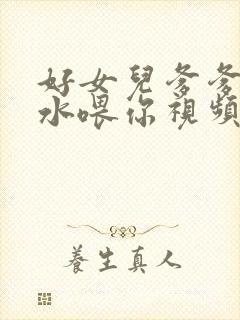 好女兒爹爹
水喂你視頻
養生真人